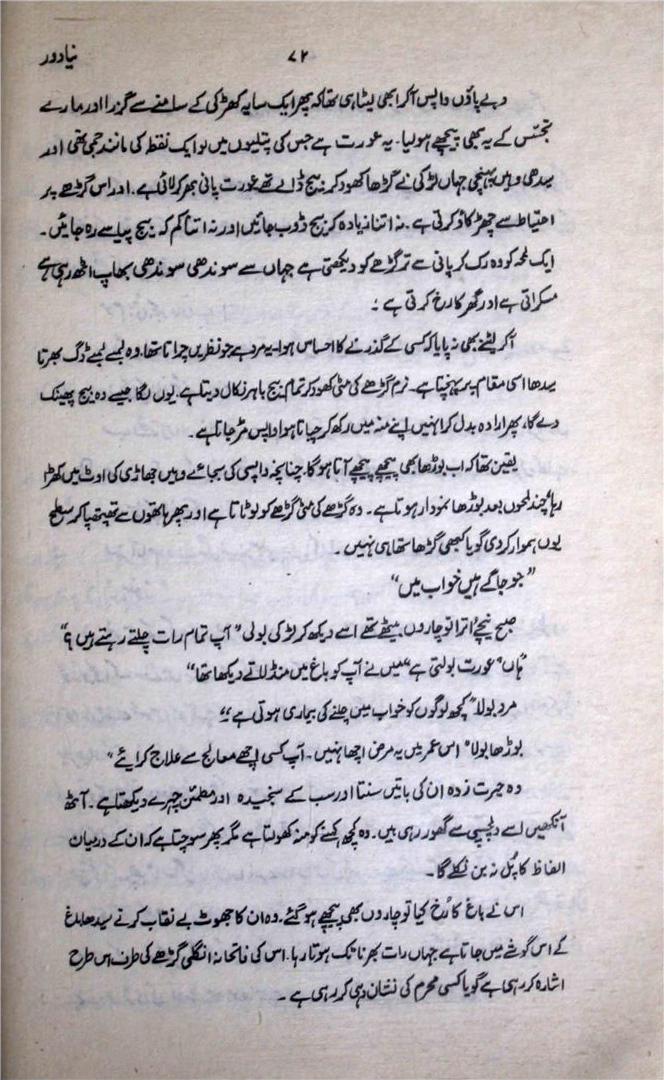 نیا دور
۷۲
دبے پاؤں واپس آکر ابھی لیٹا ہی تھا کہ پھر ایک سایہ کھڑکی کے سامنے سے گزرا اور مارے
تجسّس کے یہ بھی پیچھے ہولیا۔ یہ عورت ہے جس کی پتلیوں میں لو ایک نقطہ کی مانند جمی تھی اور
سیدھی وہیں پہنچی جہاں لڑکی نے گڑھا کھود کر بیج ڈالے تھے عورت پانی بھر کر لائی ہے۔ اور اس گڑھے پر
احتیاط سے چھڑکاؤ کرتی ہے۔ نہ اتنا زیادہ کہ بیج ڈوب جائیں اور نہ اتنا کم کہ بیج پیاسے رہ جائیں۔
ایک لمحہ کو وہ رک کر پانی سے تر گڑھے کو دیکھتی ہے جہاں سے سوندھی سوندھی بھاپ اٹھ رہی ہے
مسکراتی ہے اور گھر کا رخ کرتی ہے۔
آکر لیٹنے بھی نہ پایا کہ کسی کے گذرنے کا احساس ہوا۔ یہ مرد ہے جو نظریں چراتا تھا، وہ لمبے لمبے ڈگ بھرتا
سیدھا اسی مقام پر پہنچتا ہے۔ نرم گڑھے کی مٹی کھود کر تمام بیج باہر نکال دیتا ہے۔ یوں لگا جیسے وہ بیج پھینک
دے گا، پھر ارادہ بدل کر انہیں اپنے منہ میں رکھ کر چباتا ہوا واپس مڑ جاتا ہے۔
یقین تھا کہ اب بوڑھا بھی پیچھے پیچھے آتا ہوگا۔ چنانچہ واپسی کی بجائے وہیں جھاڑی کی اوٹ میں کھڑا
رہا، چند لمحوں بعد بوڑھا نمودار ہوتا ہے۔ وہ گڑھے کی مٹی گڑھے کو لوٹاتا ہے اور پھر ہاتھوں سے تھپتھپا کر سطح
یوں ہموار کردی گویا کبھی گڑھا تھا ہی نہیں۔
"جو جاگے ہیں خواب میں"
صبح نیچے اُترا تو چاروں بیٹھے تھے اسے دیکھ کر لڑکی بولی "آپ تمام رات چلتے رہتے ہیں؟"
"ہاں" عورت بولتی ہے "میں نے آپ کو باغ میں منڈلاتے دیکھا تھا"
مرد بولا "کچھ لوگوں کو خواب میں چلنے کی بیماری ہوتی ہے"
بوڑھا بولا "اس عمر میں یہ مرض اچھا نہیں۔ آپ کسی اچھے معالج سے علاج کرائیے"
وہ حیرت زدہ ان کی باتیں سنتا اور سب کے سنجیدہ اور مطمئن چہرے دیکھتا ہے۔ آٹھ
آنکھیں اسے دلچسپی سے گھور رہی ہیں۔ وہ کچھ کہنے کو منہ کھولتا ہے مگر پھر سوچتا ہے کہ ان کے درمیان
الفاظ کا پُل نہ بن سکے گا۔
اس نے باغ کا رُخ کیا تو چاروں بھی پیچھے ہو گئے۔ وہ ان کا جھوٹ بے نقاب کرنے سیدھا باغ
کے اس گوشے میں جاتا ہے جہاں رات بھر ناٹک ہوتا رہا۔ اس کی فاتحانہ انگلی گڑھے کی طرف اس طرح
اشارہ کر رہی ہے گویا کسی مجرم کی نشان دہی کر رہی ہے۔